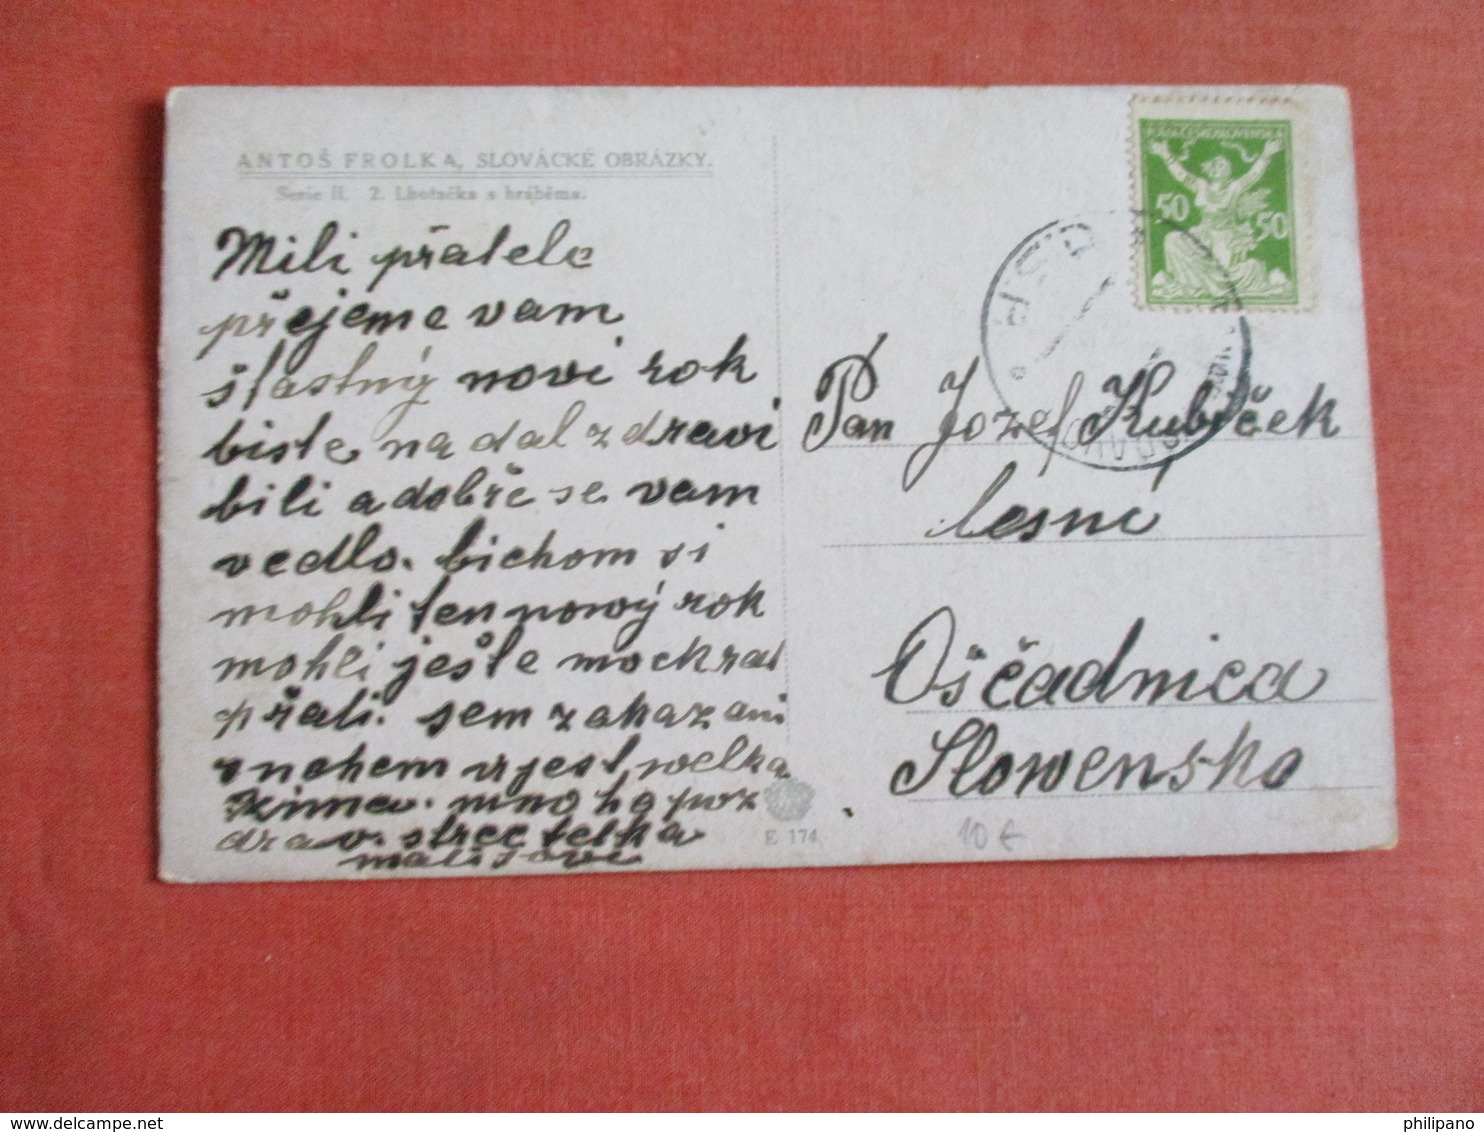 ANTOŠ FROLKA, SLOVÁCKÉ OBRÁZKY.
Serie II. 2. Lhotačka s hráběma.
Mili přatele
přejeme vam
šťastný novi rok
biste na dal zdravi
bili a dobře se vam
vedlo. bichom si
mohli ten nowý rok
mohli ješte mockrat
přati. sem zakazani
snohem vjest, welka
zima. mnoho poz
drav. strec tetka
E 174
50 50
Pan Jozef Kubiček
lesní
Oščadnica
Slowensko
10 €
philipano